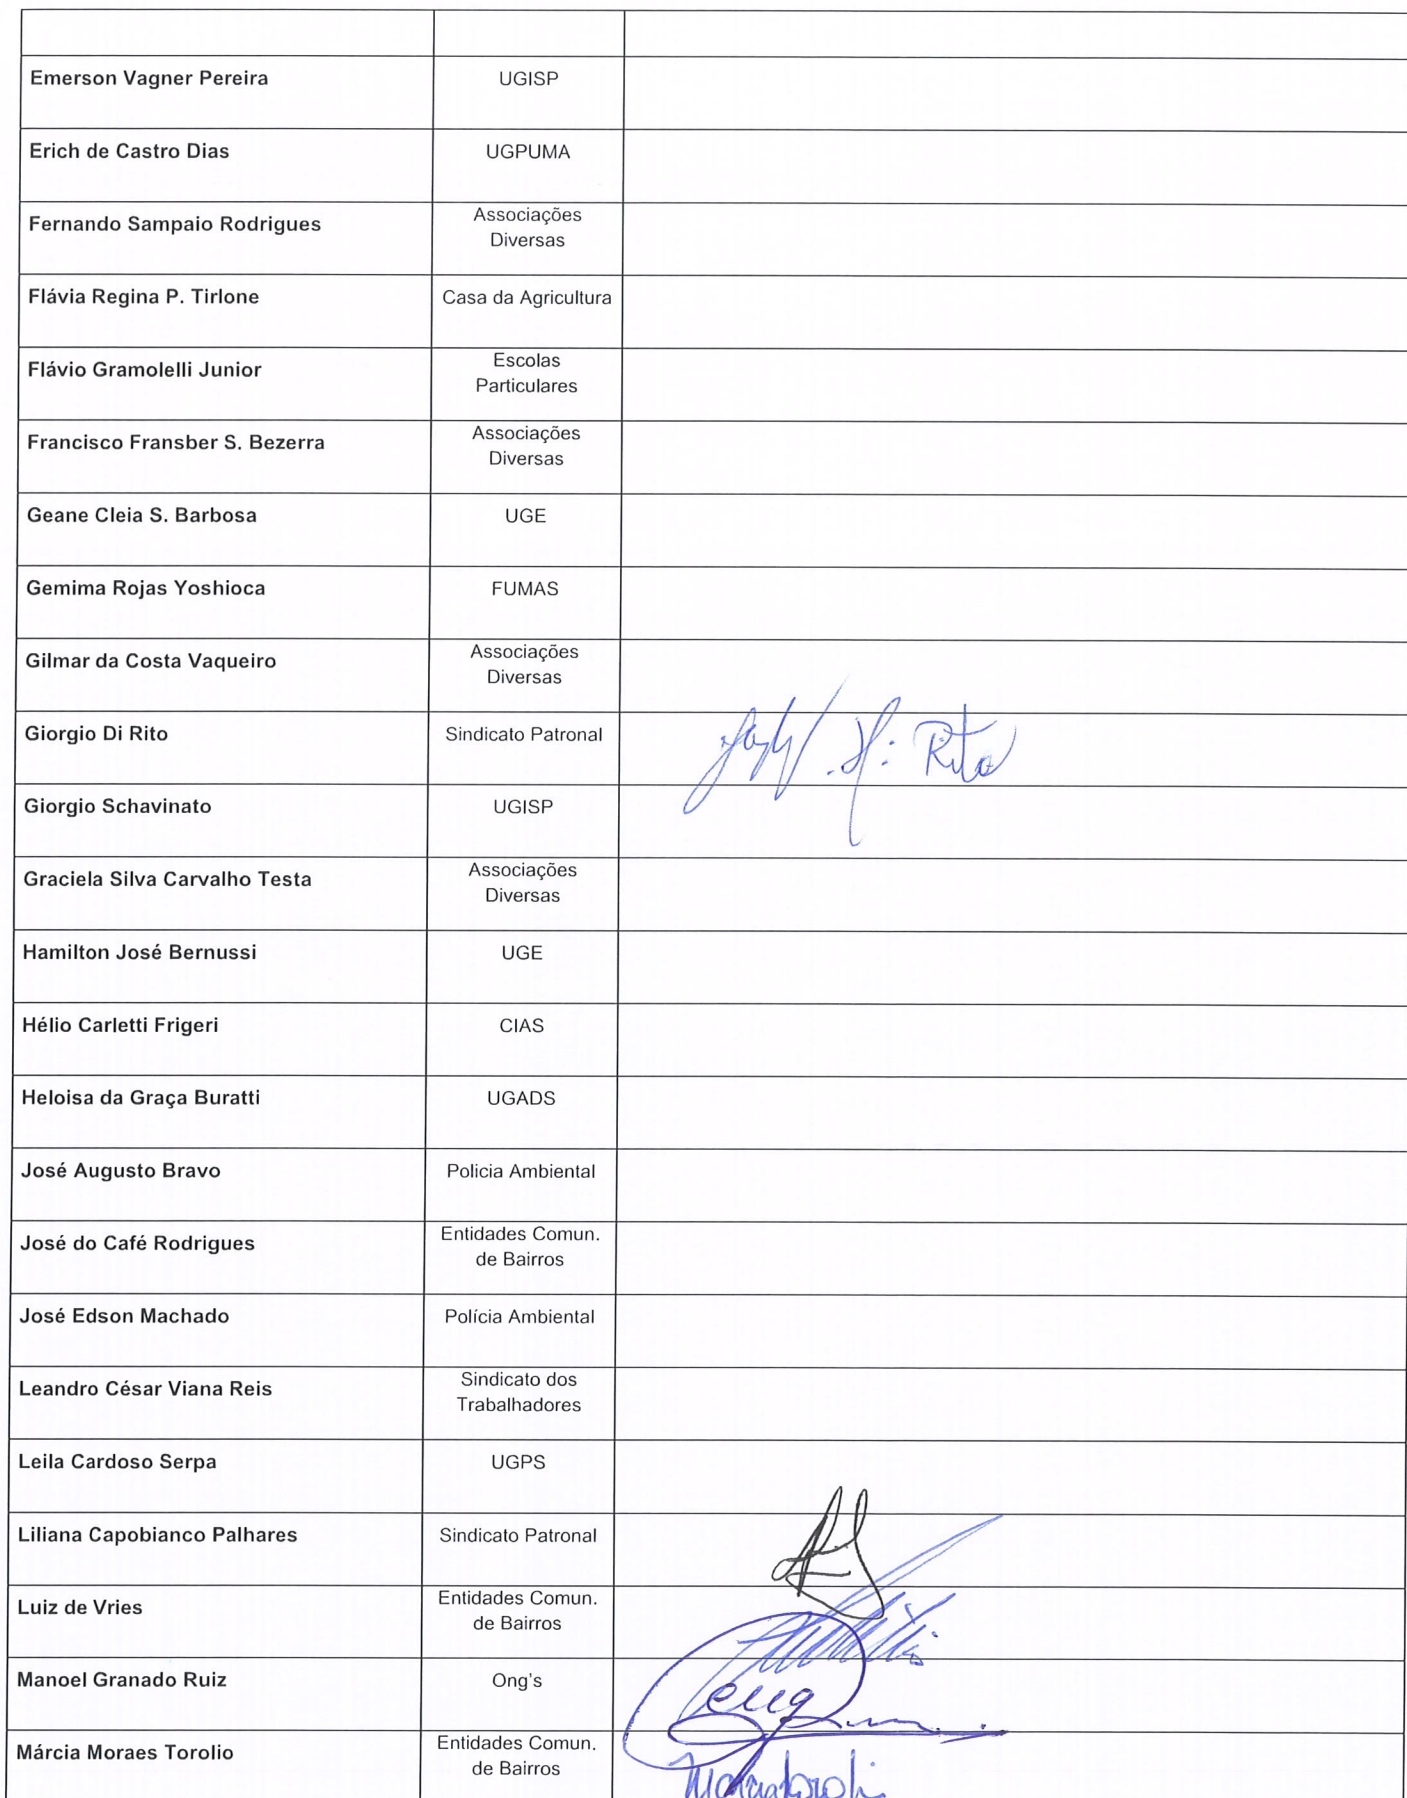 Emerson Vagner Pereira UGISP
Erich de Castro Dias UGPUMA
Fernando Sampaio Rodrigues Associações
Diversas
Flávia Regina P. Tirlone Casa da Agricultura
Flávio Gramolelli Junior Escolas
Particulares
Francisco Fransber S. Bezerra Associações
Diversas
Geane Cleia S. Barbosa UGE
Gemima Rojas Yoshioca FUMAS
Gilmar da Costa Vaqueiro Associações
Diversas
Giorgio Di Rito Sindicato Patronal Di Rito
Giorgio Schavinato UGISP
Graciela Silva Carvalho Testa Associações
Diversas
Hamilton José Bernussi UGE
Hélio Carletti Frigeri CIAS
Heloisa da Graça Buratti UGADS
José Augusto Bravo Policia Ambiental
José do Café Rodrigues Entidades Comun.
de Bairros
José Edson Machado Polícia Ambiental
Leandro César Viana Reis Sindicato dos
Trabalhadores
Leila Cardoso Serpa UGPS
Liliana Capobianco Palhares Sindicato Patronal
Luiz de Vries Entidades Comun.
de Bairros
Manoel Granado Ruiz Ong's
Márcia Moraes Torolio Entidades Comun.
de Bairros